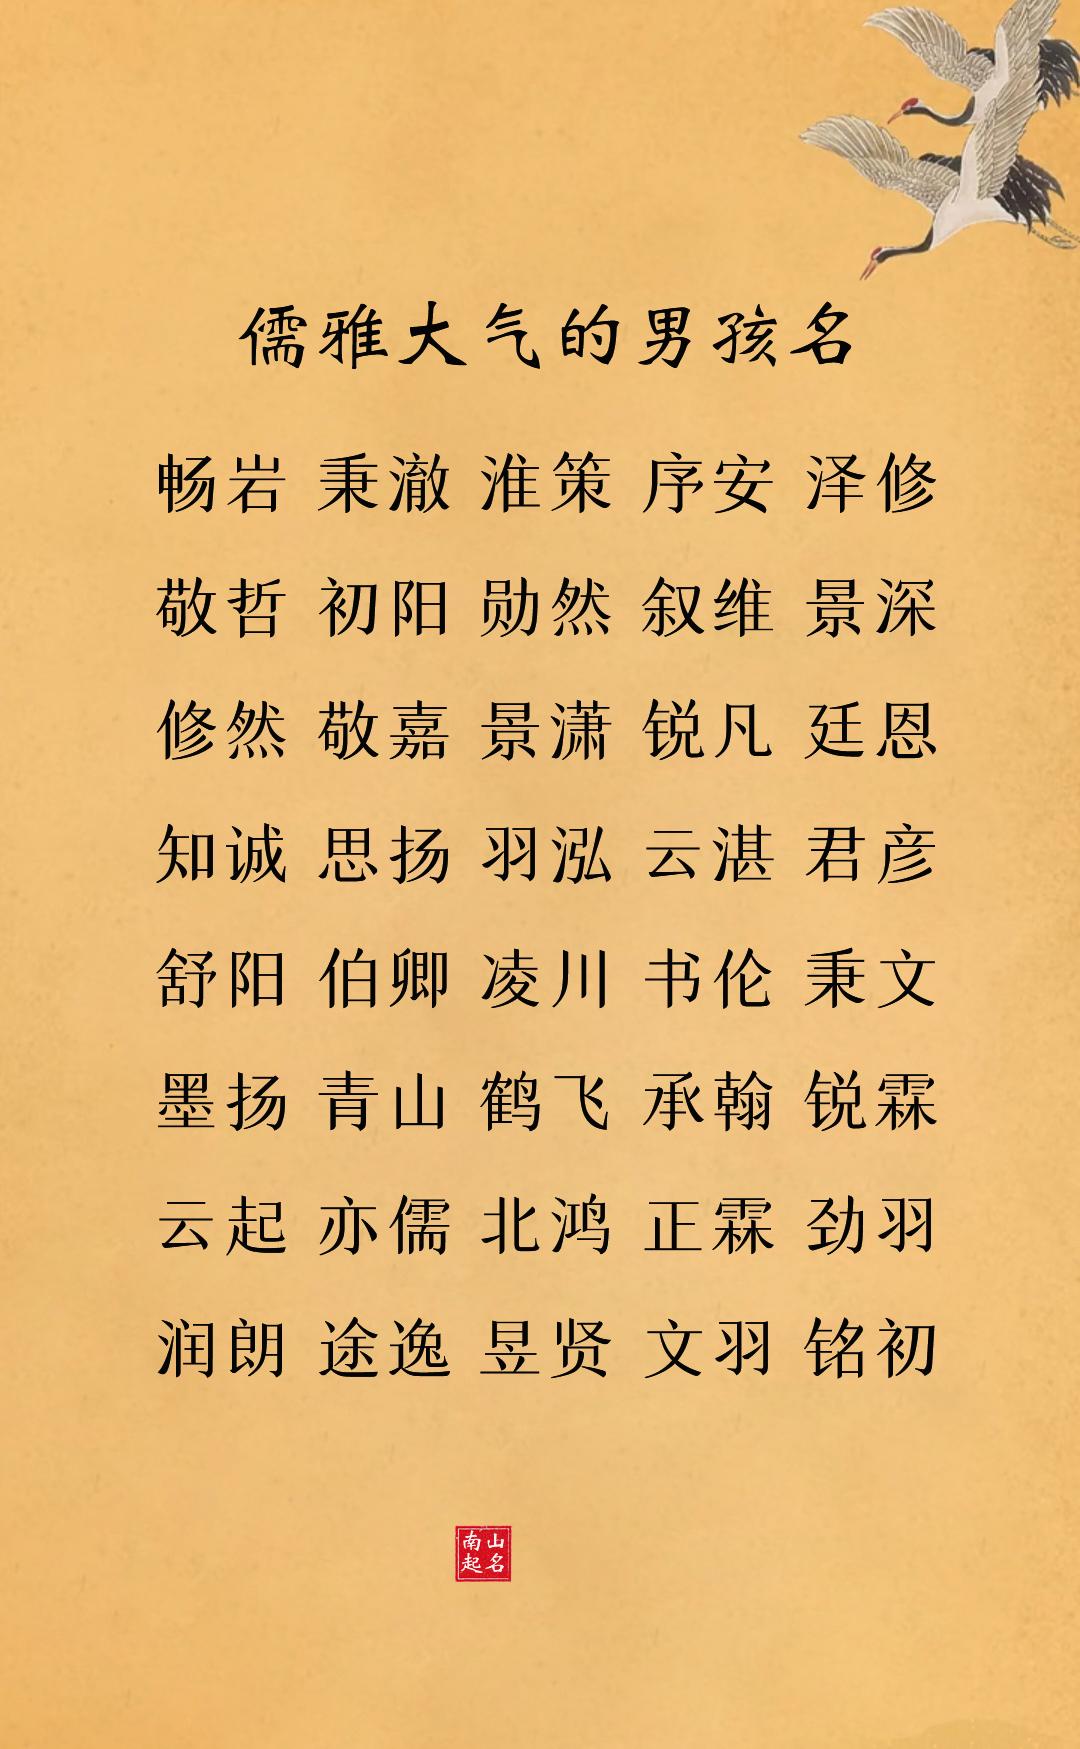 儒雅大气的男孩名
畅岩 秉澈 淮策 序安 泽修
敬哲 初阳 勋然 叙维 景深
修然 敬嘉 景潇 锐凡 廷恩
知诚 思扬 羽泓 云湛 君彦
舒阳 伯卿 凌川 书伦 秉文
墨扬 青山 鹤飞 承翰 锐霖
云起 亦儒 北鸿 正霖 劲羽
润朗 途逸 昱贤 文羽 铭初
南山
起名